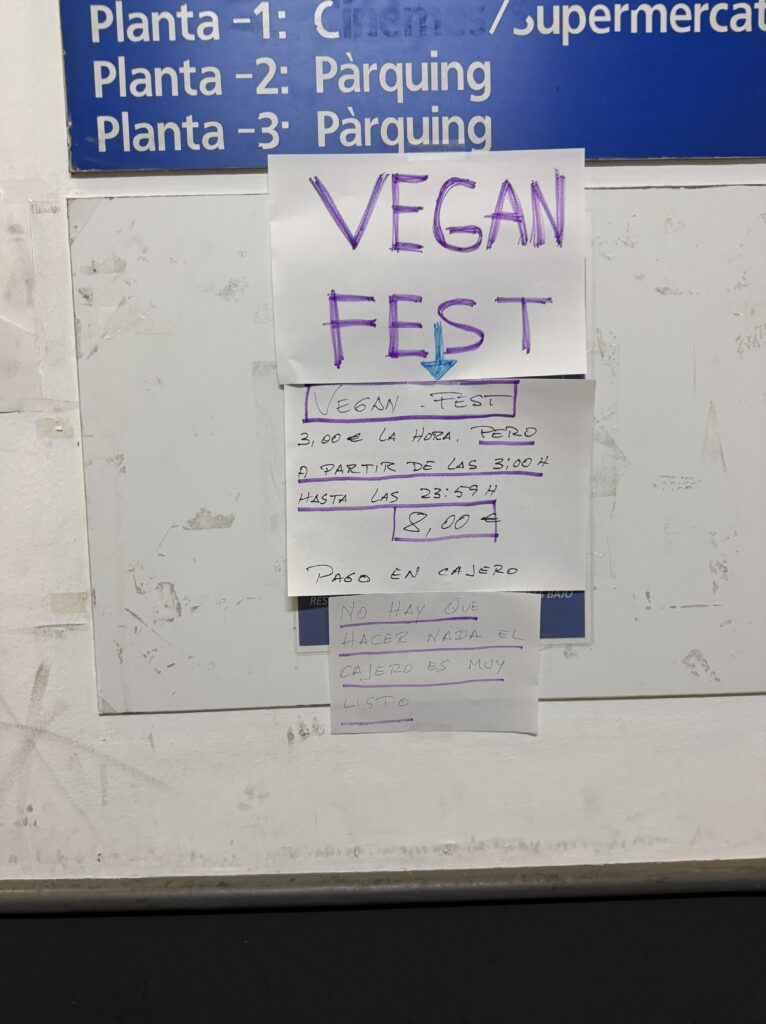 Planta -1: Cinemes/Supermercat
Planta -2: Pàrquing
Planta -3: Pàrquing
VEGAN
FEST
VEGAN - FEST
3,00 € LA HORA, PERO
A PARTIR DE LAS 3:00 H
HASTA LAS 23:59 H
8,00 €
PAGO EN CAJERO
BAJO
NO HAY QUE
HACER NADA EL
CAJERO ES MUY
LISTO